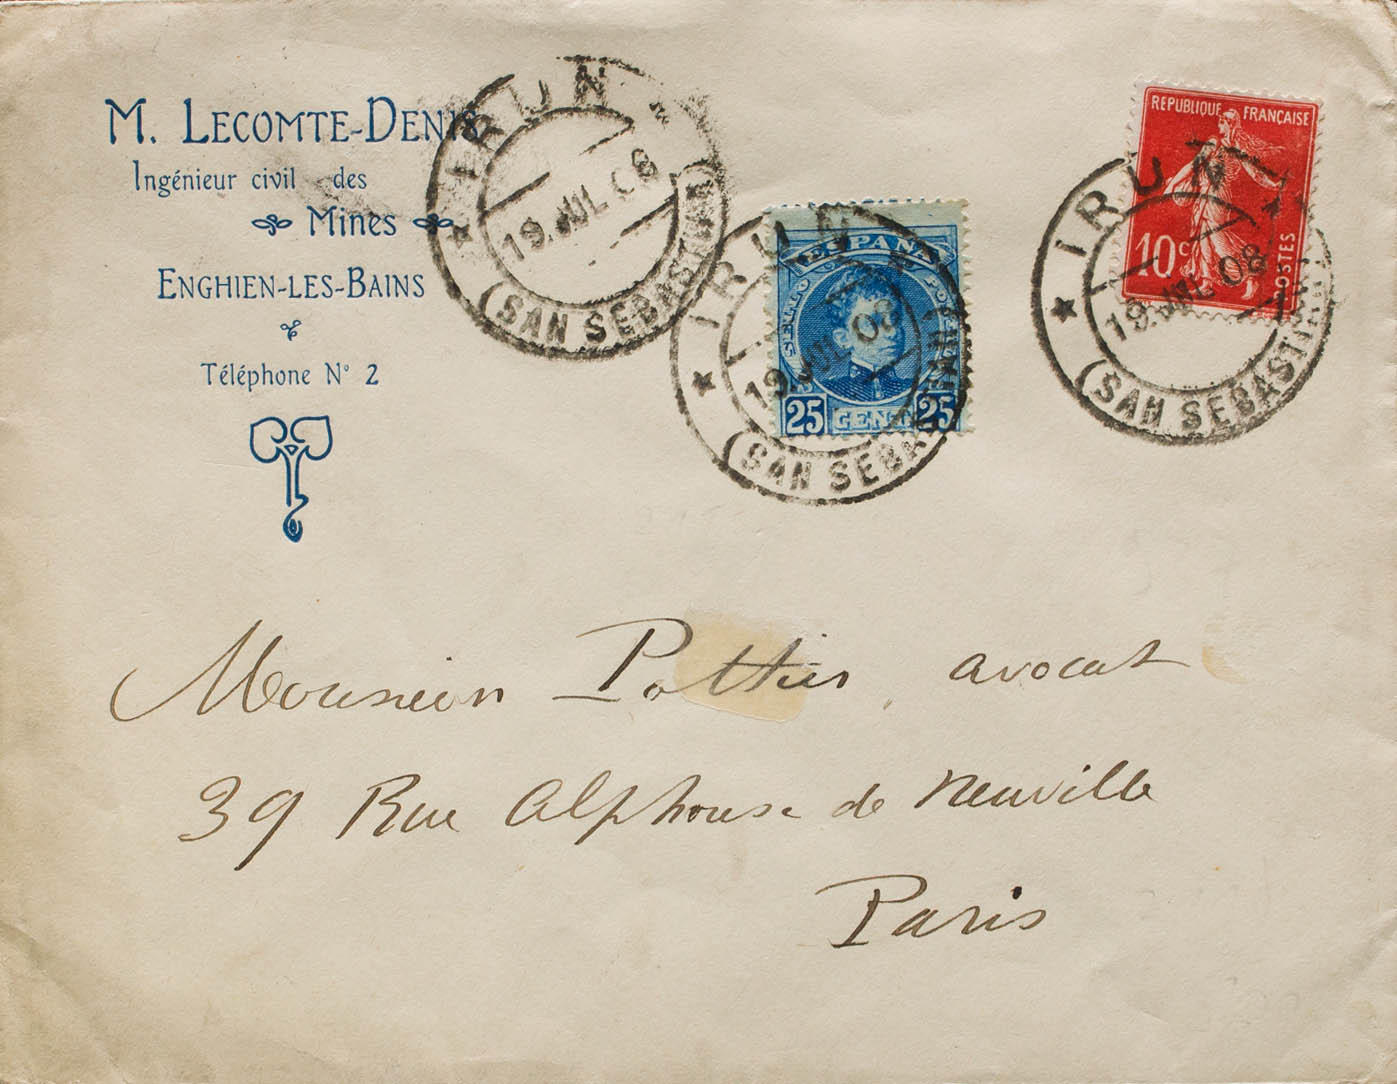 M. LECOMTE-DENIS
Ingénieur civil des
Mines
ENGHIEN-LES-BAINS
Téléphone N° 2
IRUN
19.JUL.08
(SAN SEBASTIAN)
IRUN
19.JUL.08
(SAN SEBASTIAN)
ESPAÑA
SELLO
25 CENT 25
REPUBLIQUE FRANÇAISE
10c
POSTES
IRUN
19.JUL.08
(SAN SEBASTIAN)
Monsieur Pottier avocat
39 Rue Alphonse de Neuville
Paris